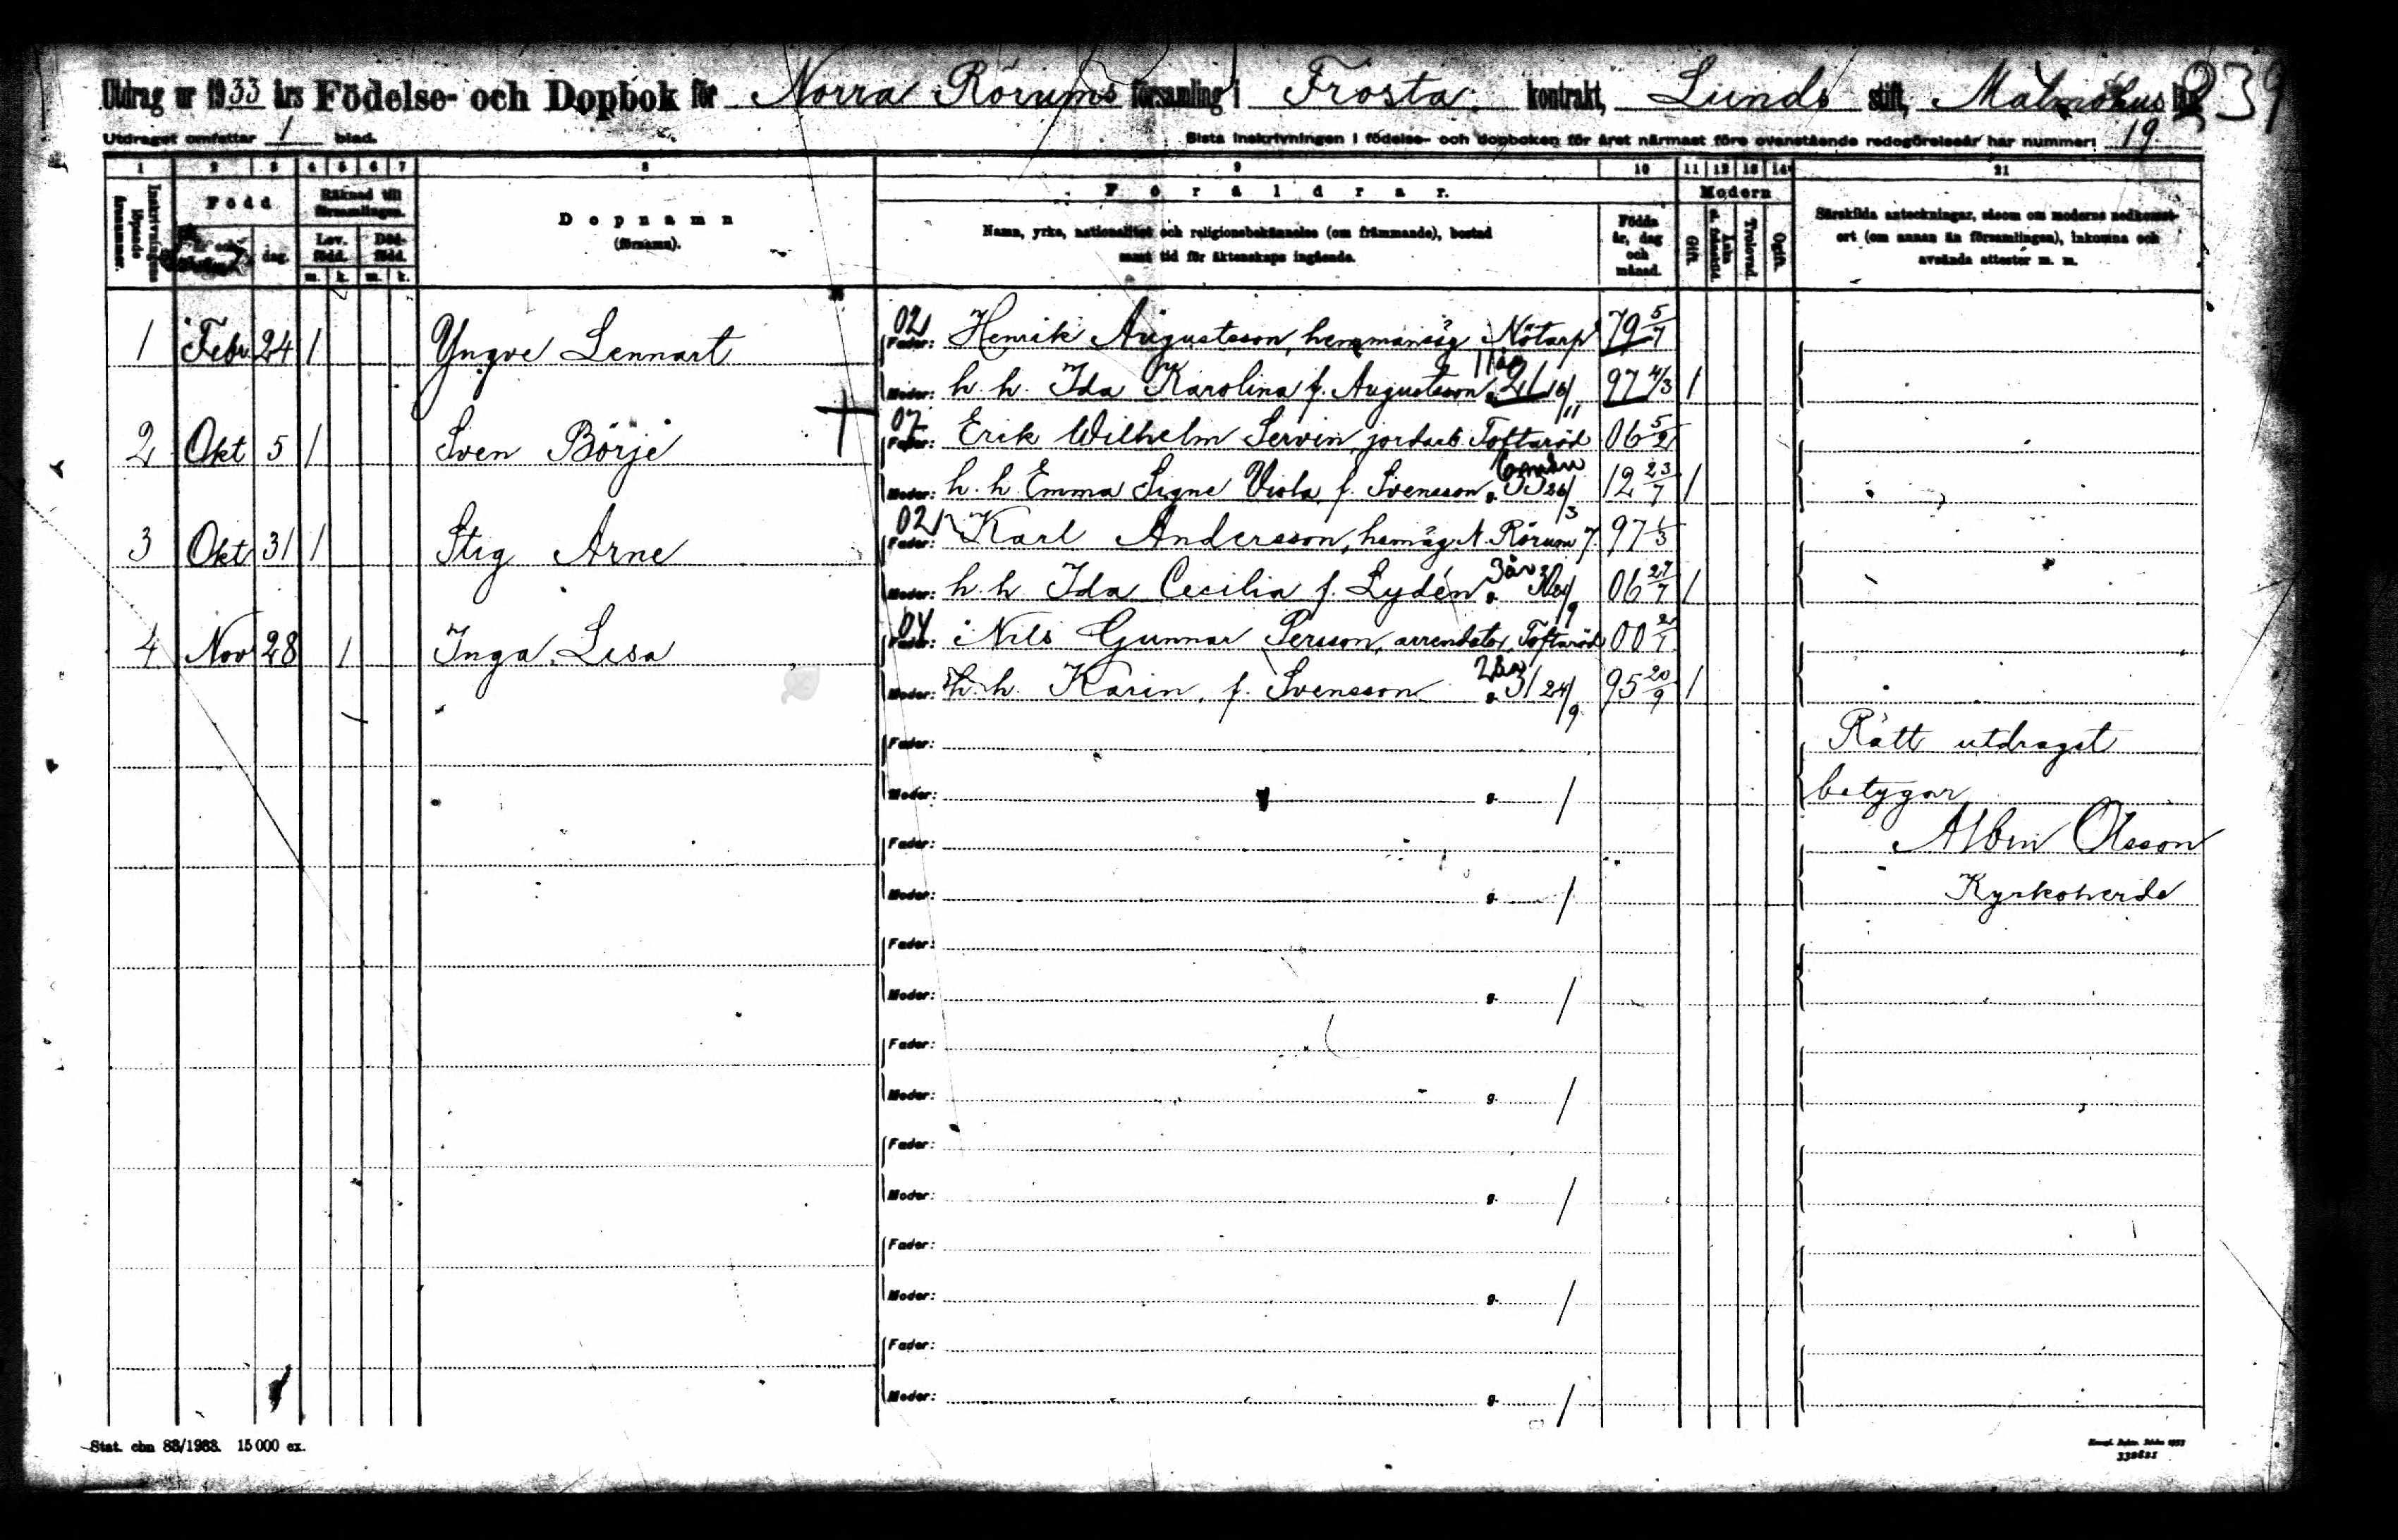 Utdrag ur 1933 års Födelse- och Dopbok för Norra Rörums församling i Frosta kontrakt, Lunds stift, Malmöhus län 239
Utdraget omfattar 1 blad. Sista inskrivningen i födelse- och dopboken för året närmast före ovanstående redogörelseår har nummer: 19.
1 2 3 4 5 6 7 8 9 10 11 12 13 14 21
Inskrivningens löpande årsnummer.
Född
dag.
Räknad till församlingen.
Lev. född.
Död- född.
m. k. m. k.
Dopnamn
(förnamn).
Föräldrar.
Namn, yrke, nationalitet och religionsbekännelse (om främmande), bostad
samt tid för äktenskaps ingående.
Födda år, dag och månad.
Modern
Gift.
Trolovad.
Ogift.
Särskilda anteckningar, såsom om moderns nedkomst-
ort (om annan än församlingen), inkomna och
avsända attester m. m.
1 Febr. 24 1 Yngve Lennart
02 Fader: Henrik Augustsson, hemmansäg Nötarp 79 5/7
11 år
Moder: h. h. Ida Karolina f. Augustsson g. 21 16/11 97 4/3 1
2 Okt 5 1 Sven Börje
07 Fader: Erik Wilhelm Servin, jordarb. Toftaröd 06 5/2
6 mån
Moder: h. h. Emma Signe Viola f. Svensson g. 33 26/3 12 23/7 1
3 Okt 31 1 Stig Arne
02 Fader: Karl Andersson, hemäg N. Rörum 7. 97 1/3
3 år
Moder: h. h. Ida Cecilia f. Lydén g. 30 /9 06 27/7 1
4 Nov 28 1 Inga Lisa
04 Fader: Nils Gunnar Persson, arrendator, Toftaröd 00
2 år
Moder: h. h. Karin, f. Svensson g. 31 24/9 95 20/9 1
Rätt utdraget
betygar
Albin Olsson
Kyrkoherde
Fader:
Moder: g. /
Fader:
Moder: g. /
Fader:
Moder: g. /
Fader:
Moder: g. /
Fader:
Moder: g. /
Fader:
Moder: g. /
Fader:
Moder: g. /
Stat. cbn 83/1933. 15 000 ex.
332621